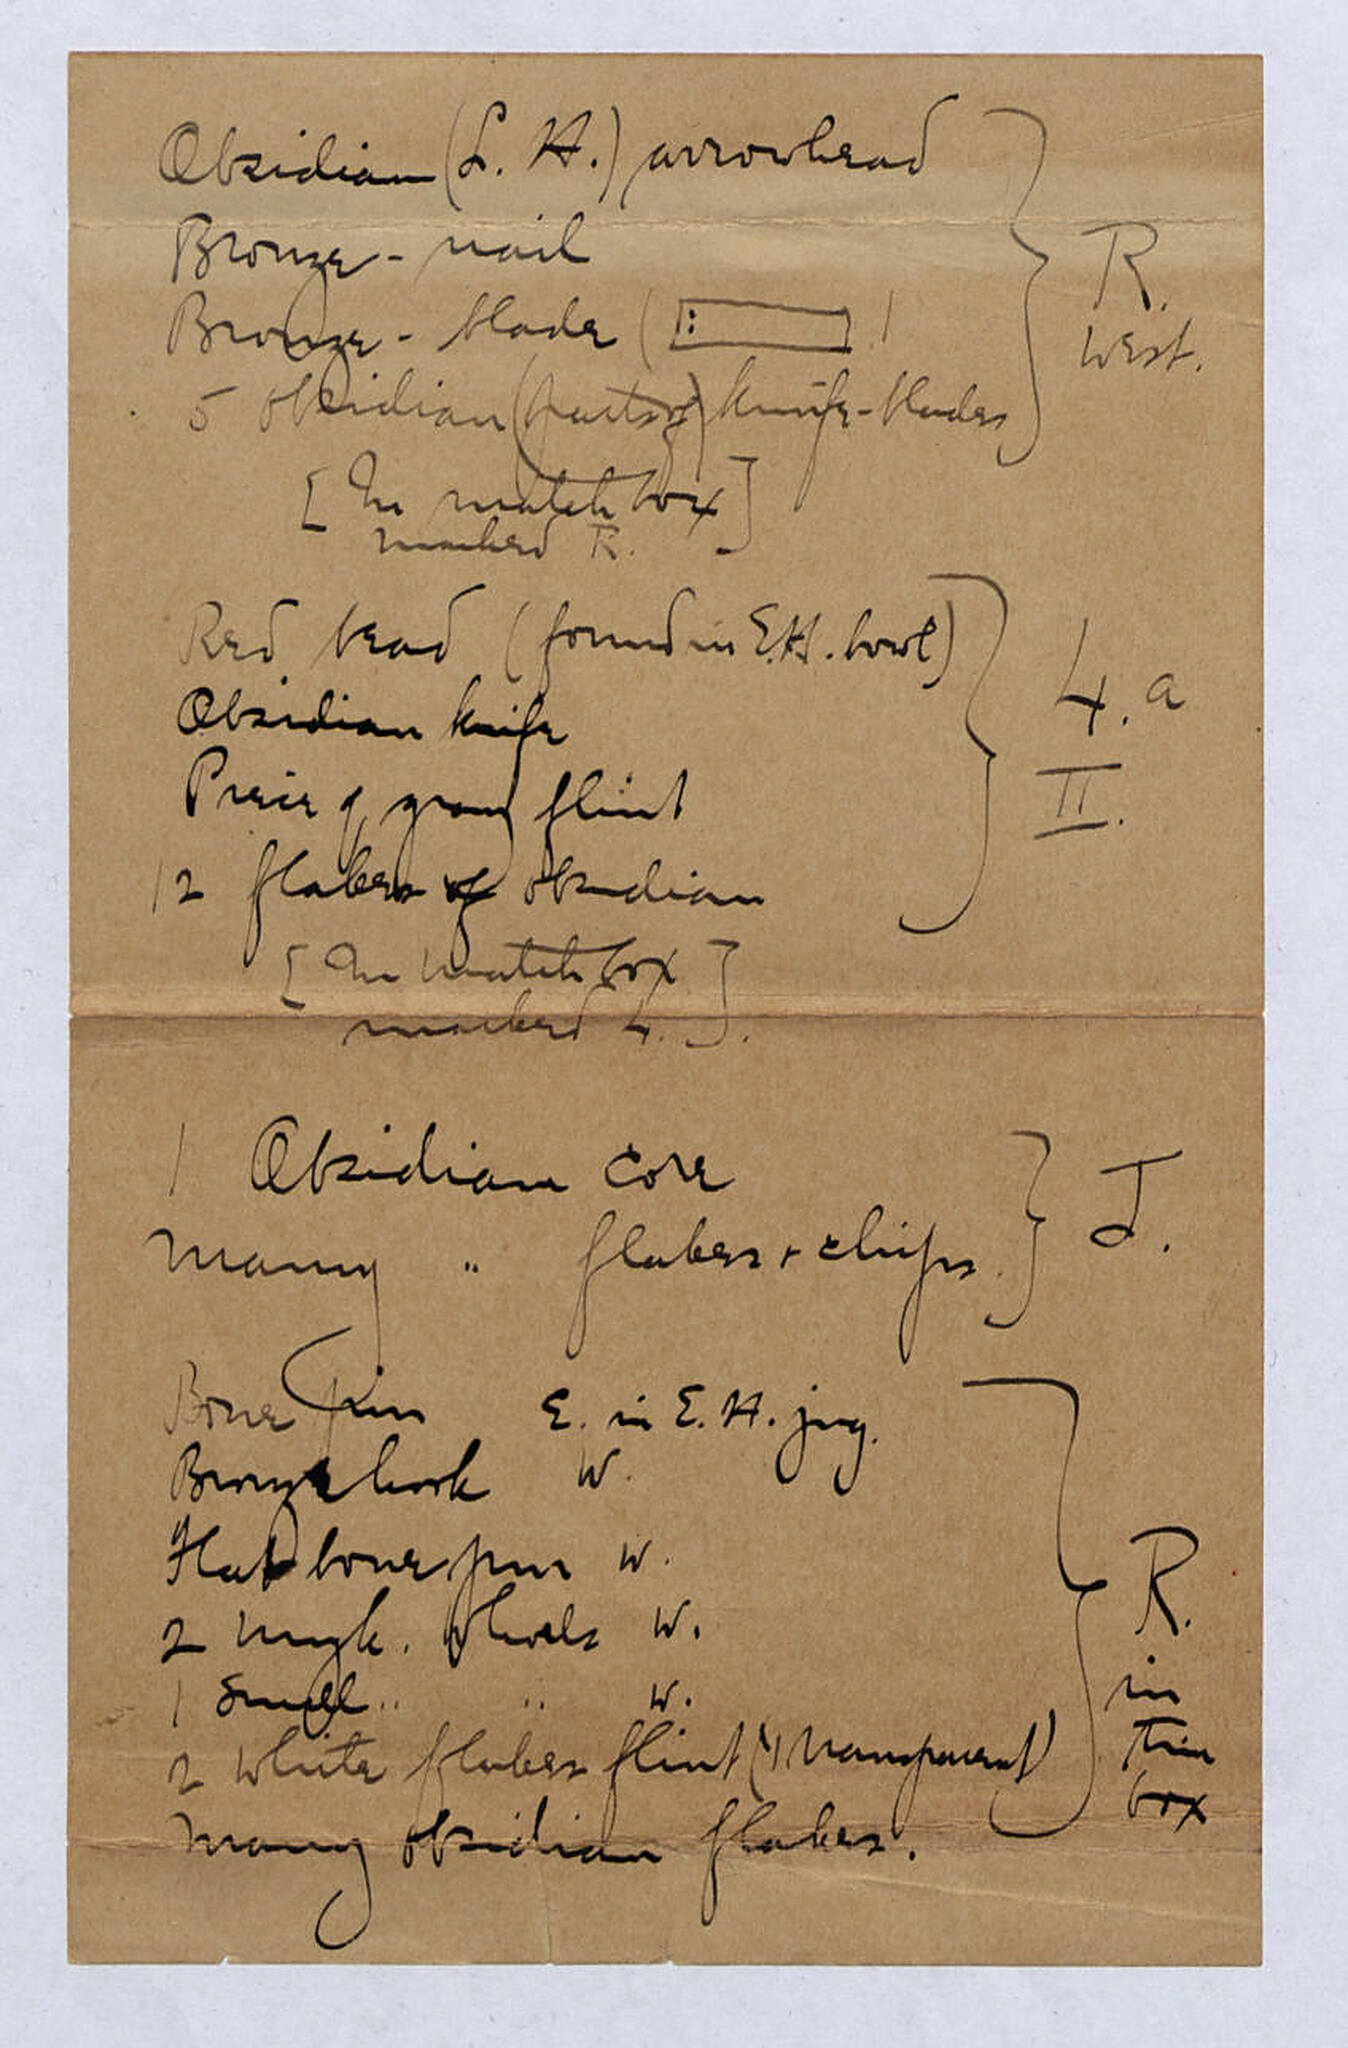 Obsidian (L. H.) arrowhead
Bronze - nail
Bronze - blade ( : )
R.
West.
5 obsidian (parts of) knife-blades
[ In match box ]
marked R.
Red bead (found in E.H. bowl)
Obsidian knife
4. a
II.
Piece of, flint
12 flakes of obsidian
[ In match box ]
marked 4.
1 Obsidian core
Many " flakes + chips
J.
Bone pin E. in E. H. jug.
Bronze hook W.
Flat bone pin W.
2 whorls W.
1 small " " W.
2 white flakes flint (1 transparent)
Many obsidian flakes.
R.
in
box